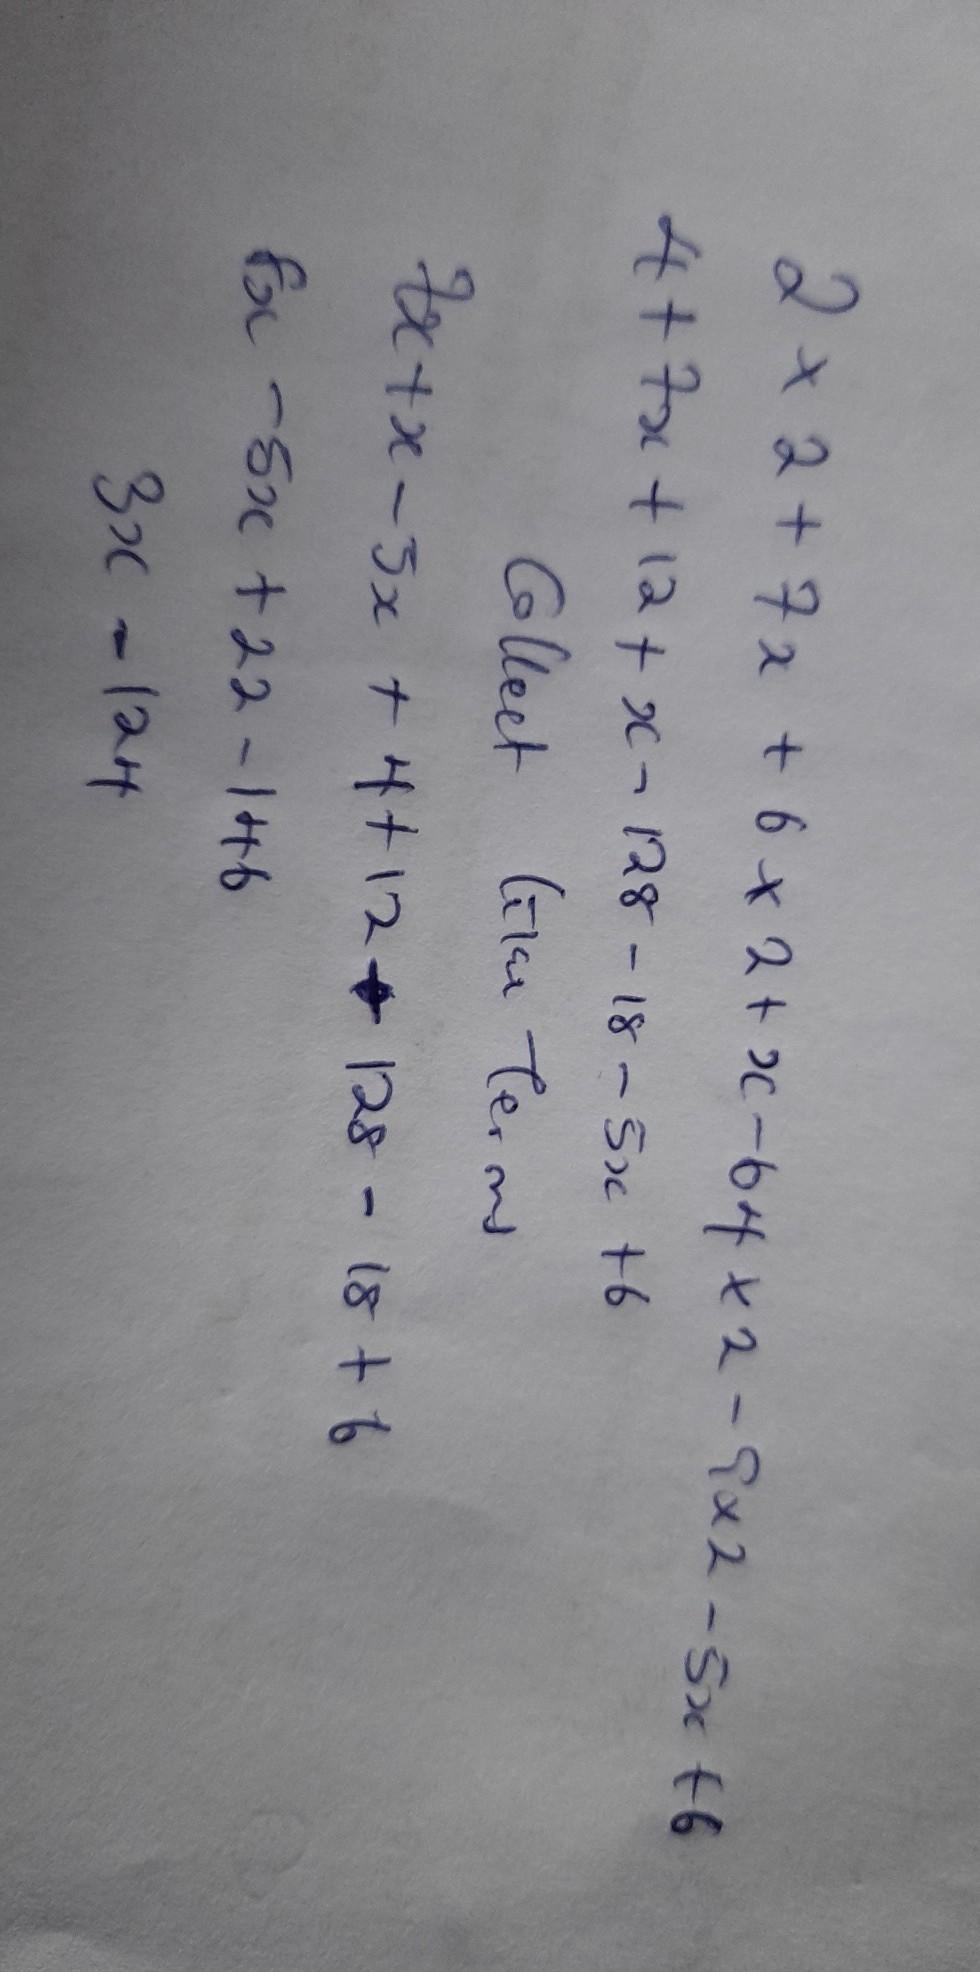 2 × 2 + 7x + 6 × 2 + x - 64 × 2 - 9 × 2 - 5x + 6
4 + 7x + 12 + x - 128 - 18 - 5x + 6
Collect like Terms
7x + x - 5x + 4 + 12 - 128 - 18 + 6
8x - 5x + 22 - 146
3x - 124